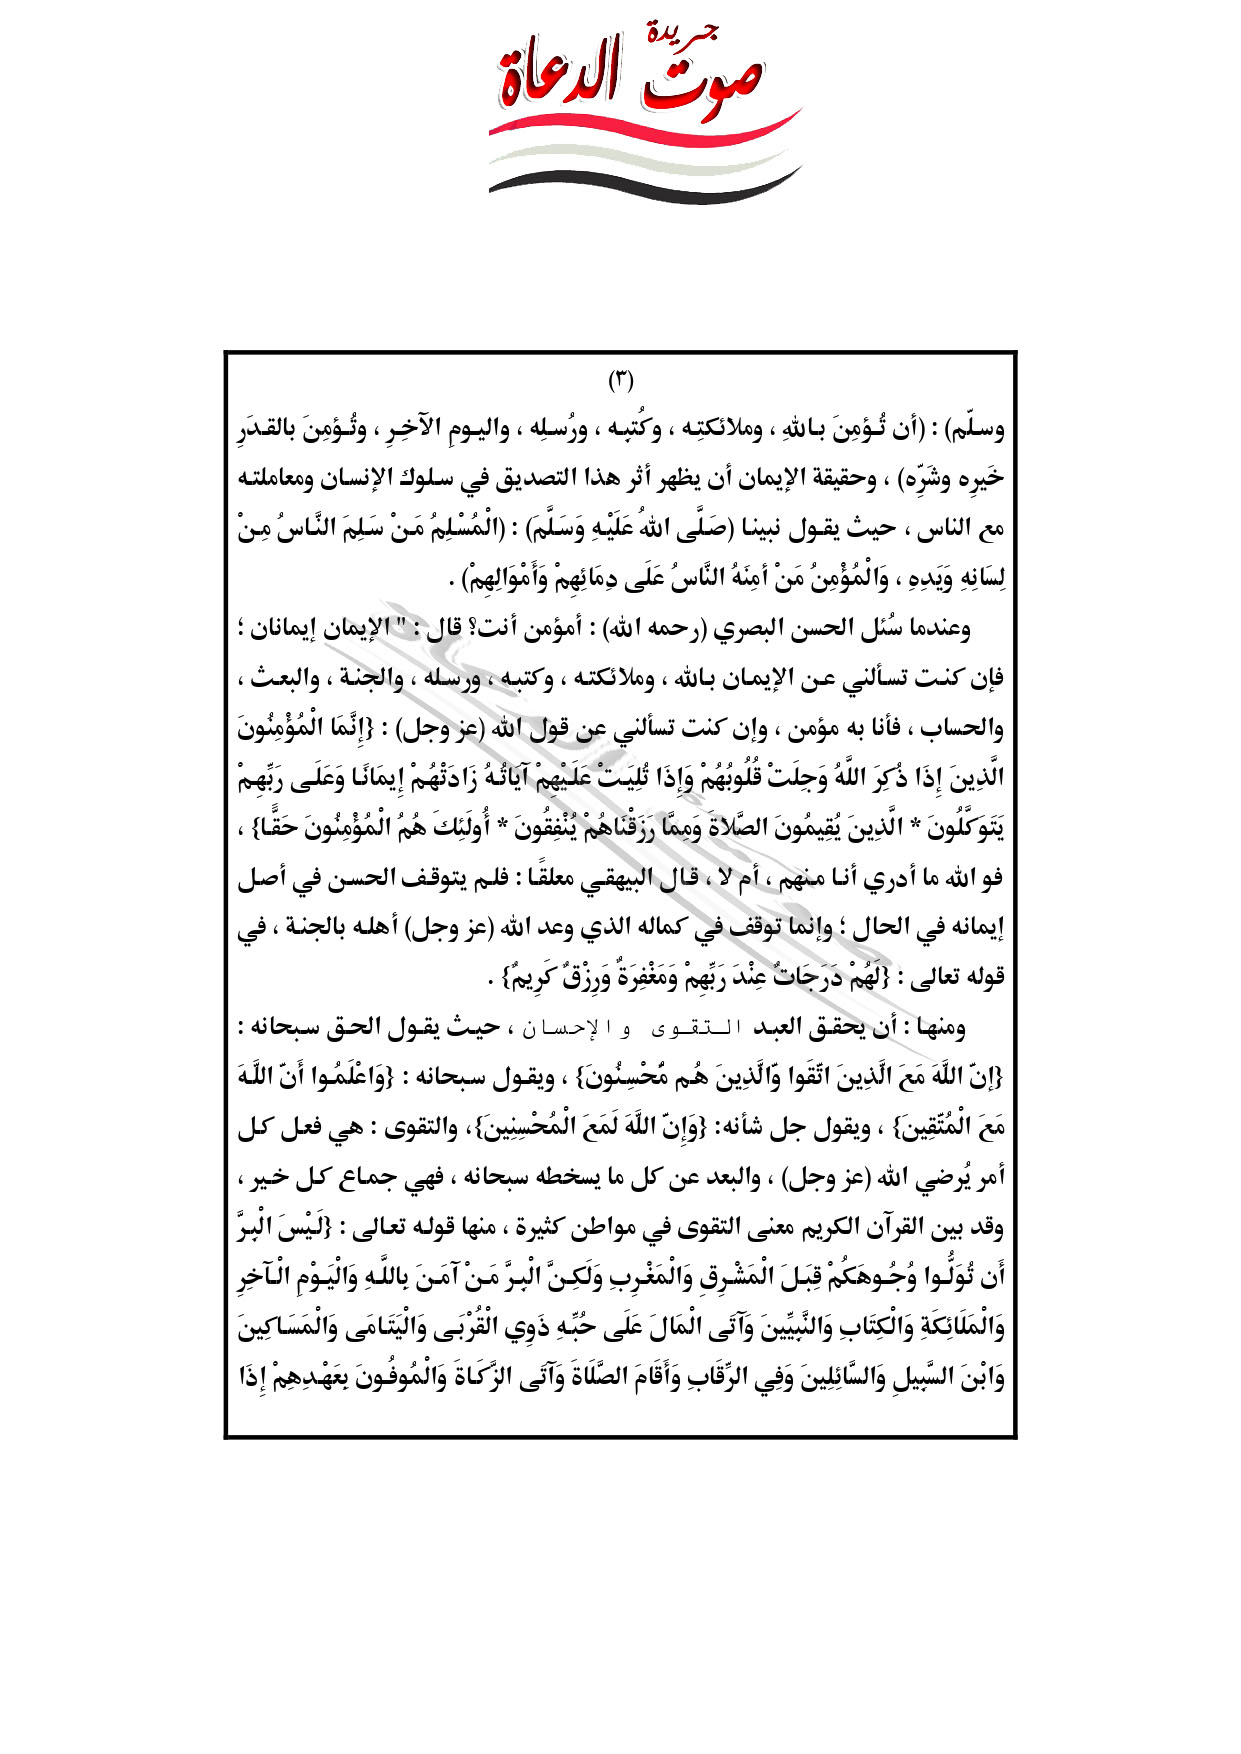 جريدة
صوت الدعاة
(٣)
وسلّم) : (أن تُؤمِنَ باللهِ ، وملائكتِه ، وكُتبِه ، ورُسلِه ، واليومِ الآخِرِ ، وتُؤمِنَ بالقدَرِ
خَيرِه وشَرِّه) ، وحقيقة الإيمان أن يظهر أثر هذا التصديق في سلوك الإنسان ومعاملته
مع الناس ، حيث يقول نبينا (صَلَّى اللهُ عَلَيْهِ وَسَلَّمَ) : (الْمُسْلِمُ مَنْ سَلِمَ النَّاسُ مِنْ
لِسَانِهِ وَيَدِهِ ، وَالْمُؤْمِنُ مَنْ أمِنَهُ النَّاسُ عَلَى دِمَائِهِمْ وَأَمْوَالِهِمْ) .
وعندما سُئل الحسن البصري (رحمه الله) : أمؤمن أنت؟ قال : " الإيمان إيمانان ؛
فإن كنت تسألني عن الإيمان بالله ، وملائكته ، وكتبه ، ورسله ، والجنة ، والبعث ،
والحساب ، فأنا به مؤمن ، وإن كنت تسألني عن قول الله (عز وجل) : {إِنَّمَا الْمُؤْمِنُونَ
الَّذِينَ إِذَا ذُكِرَ اللَّهُ وَجِلَتْ قُلُوبُهُمْ وَإِذَا تُلِيَتْ عَلَيْهِمْ آيَاتُهُ زَادَتْهُمْ إِيمَانًا وَعَلَى رَبِّهِمْ
يَتَوَكَّلُونَ * الَّذِينَ يُقِيمُونَ الصَّلاةَ وَمِمَّا رَزَقْنَاهُمْ يُنْفِقُونَ * أُولَئِكَ هُمُ الْمُؤْمِنُونَ حَقًّا} ،
فو الله ما أدري أنا منهم ، أم لا ، قال البيهقي معلقًا : فلم يتوقف الحسن في أصل
إيمانه في الحال ؛ وإنما توقف في كماله الذي وعد الله (عز وجل) أهله بالجنة ، في
قوله تعالى : {لَهُمْ دَرَجَاتٌ عِنْدَ رَبِّهِمْ وَمَغْفِرَةٌ وَرِزْقٌ كَرِيمٌ} .
ومنها : أن يحقق العبد التقوى والإحسان ، حيث يقول الحق سبحانه :
{إنّ اللَّهَ مَعَ الَّذِينَ اتّقَوا وّالَّذِينَ هُم مّحْسِنُونَ} ، ويقول سبحانه : {وَاعْلَمُوا أَنّ اللَّهَ
مَعَ الْمُتّقِينَ} ، ويقول جل شأنه: {وَإِنّ اللَّهَ لَمَعَ الْمُحْسِنِينَ}، والتقوى : هي فعل كل
أمر يُرضي الله (عز وجل) ، والبعد عن كل ما يسخطه سبحانه ، فهي جماع كل خير ،
وقد بين القرآن الكريم معنى التقوى في مواطن كثيرة ، منها قوله تعالى : {لَيْسَ الْبِرَّ
أَن تُوَلُّوا وُجُوهَكُمْ قِبَلَ الْمَشْرِقِ وَالْمَغْرِبِ وَلَكِنَّ الْبِرَّ مَنْ آمَنَ بِاللَّهِ وَالْيَوْمِ الْآخِرِ
وَالْمَلَائِكَةِ وَالْكِتَابِ وَالنَّبِيِّينَ وَآتَى الْمَالَ عَلَى حُبِّهِ ذَوِي الْقُرْبَى وَالْيَتَامَى وَالْمَسَاكِينَ
وَابْنَ السَّبِيلِ وَالسَّائِلِينَ وَفِي الرِّقَابِ وَأَقَامَ الصَّلَاةَ وَآتَى الزَّكَاةَ وَالْمُوفُونَ بِعَهْدِهِمْ إِذَا